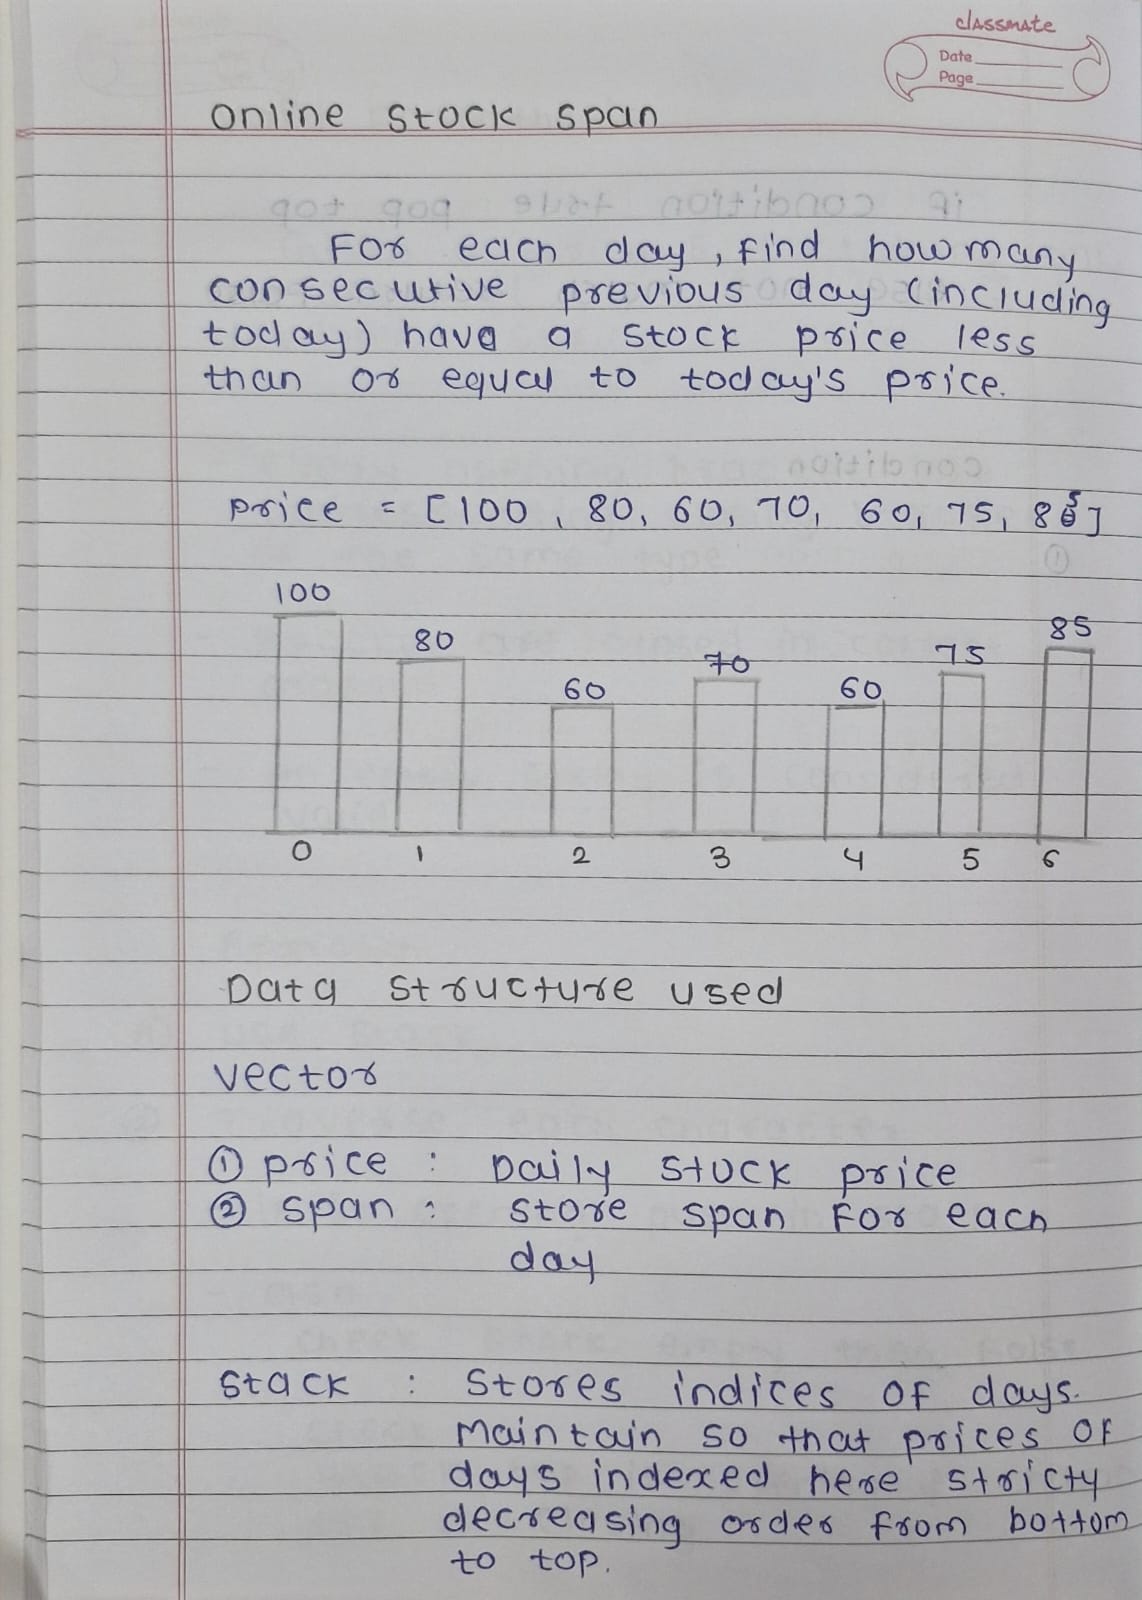 classmate
Date
Page
Online Stock Span
For each day, find how many
consecutive previous day (including
today) have a stock price less
than or equal to today's price.
price = [100, 80, 60, 70, 60, 75, 85]
100
80
60
70
60
75
85
0 1 2 3 4 5 6
Data structure used
vector
① price : Daily stock price
② span : store span for each
day
Stack : Stores indices of days.
Maintain so that prices of
days indexed here stricty
decreasing order from bottom
to top.